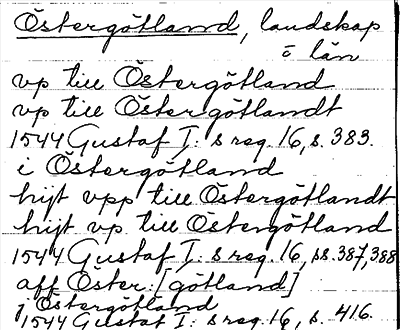 Östergötland, landskap
o län
vp till Östergötland
vp till Östergötlandt
1544 Gustaf I: s reg. 16, s. 383.
i Östergötland
hijt vpp till Östergötlandt
hijt vp till Östergötland
1544 Gustaf I: s reg. 16, ss. 387, 388
aff Öster: [götland]
j Östergötland
1544 Gustaf I: s reg. 16, s. 416.